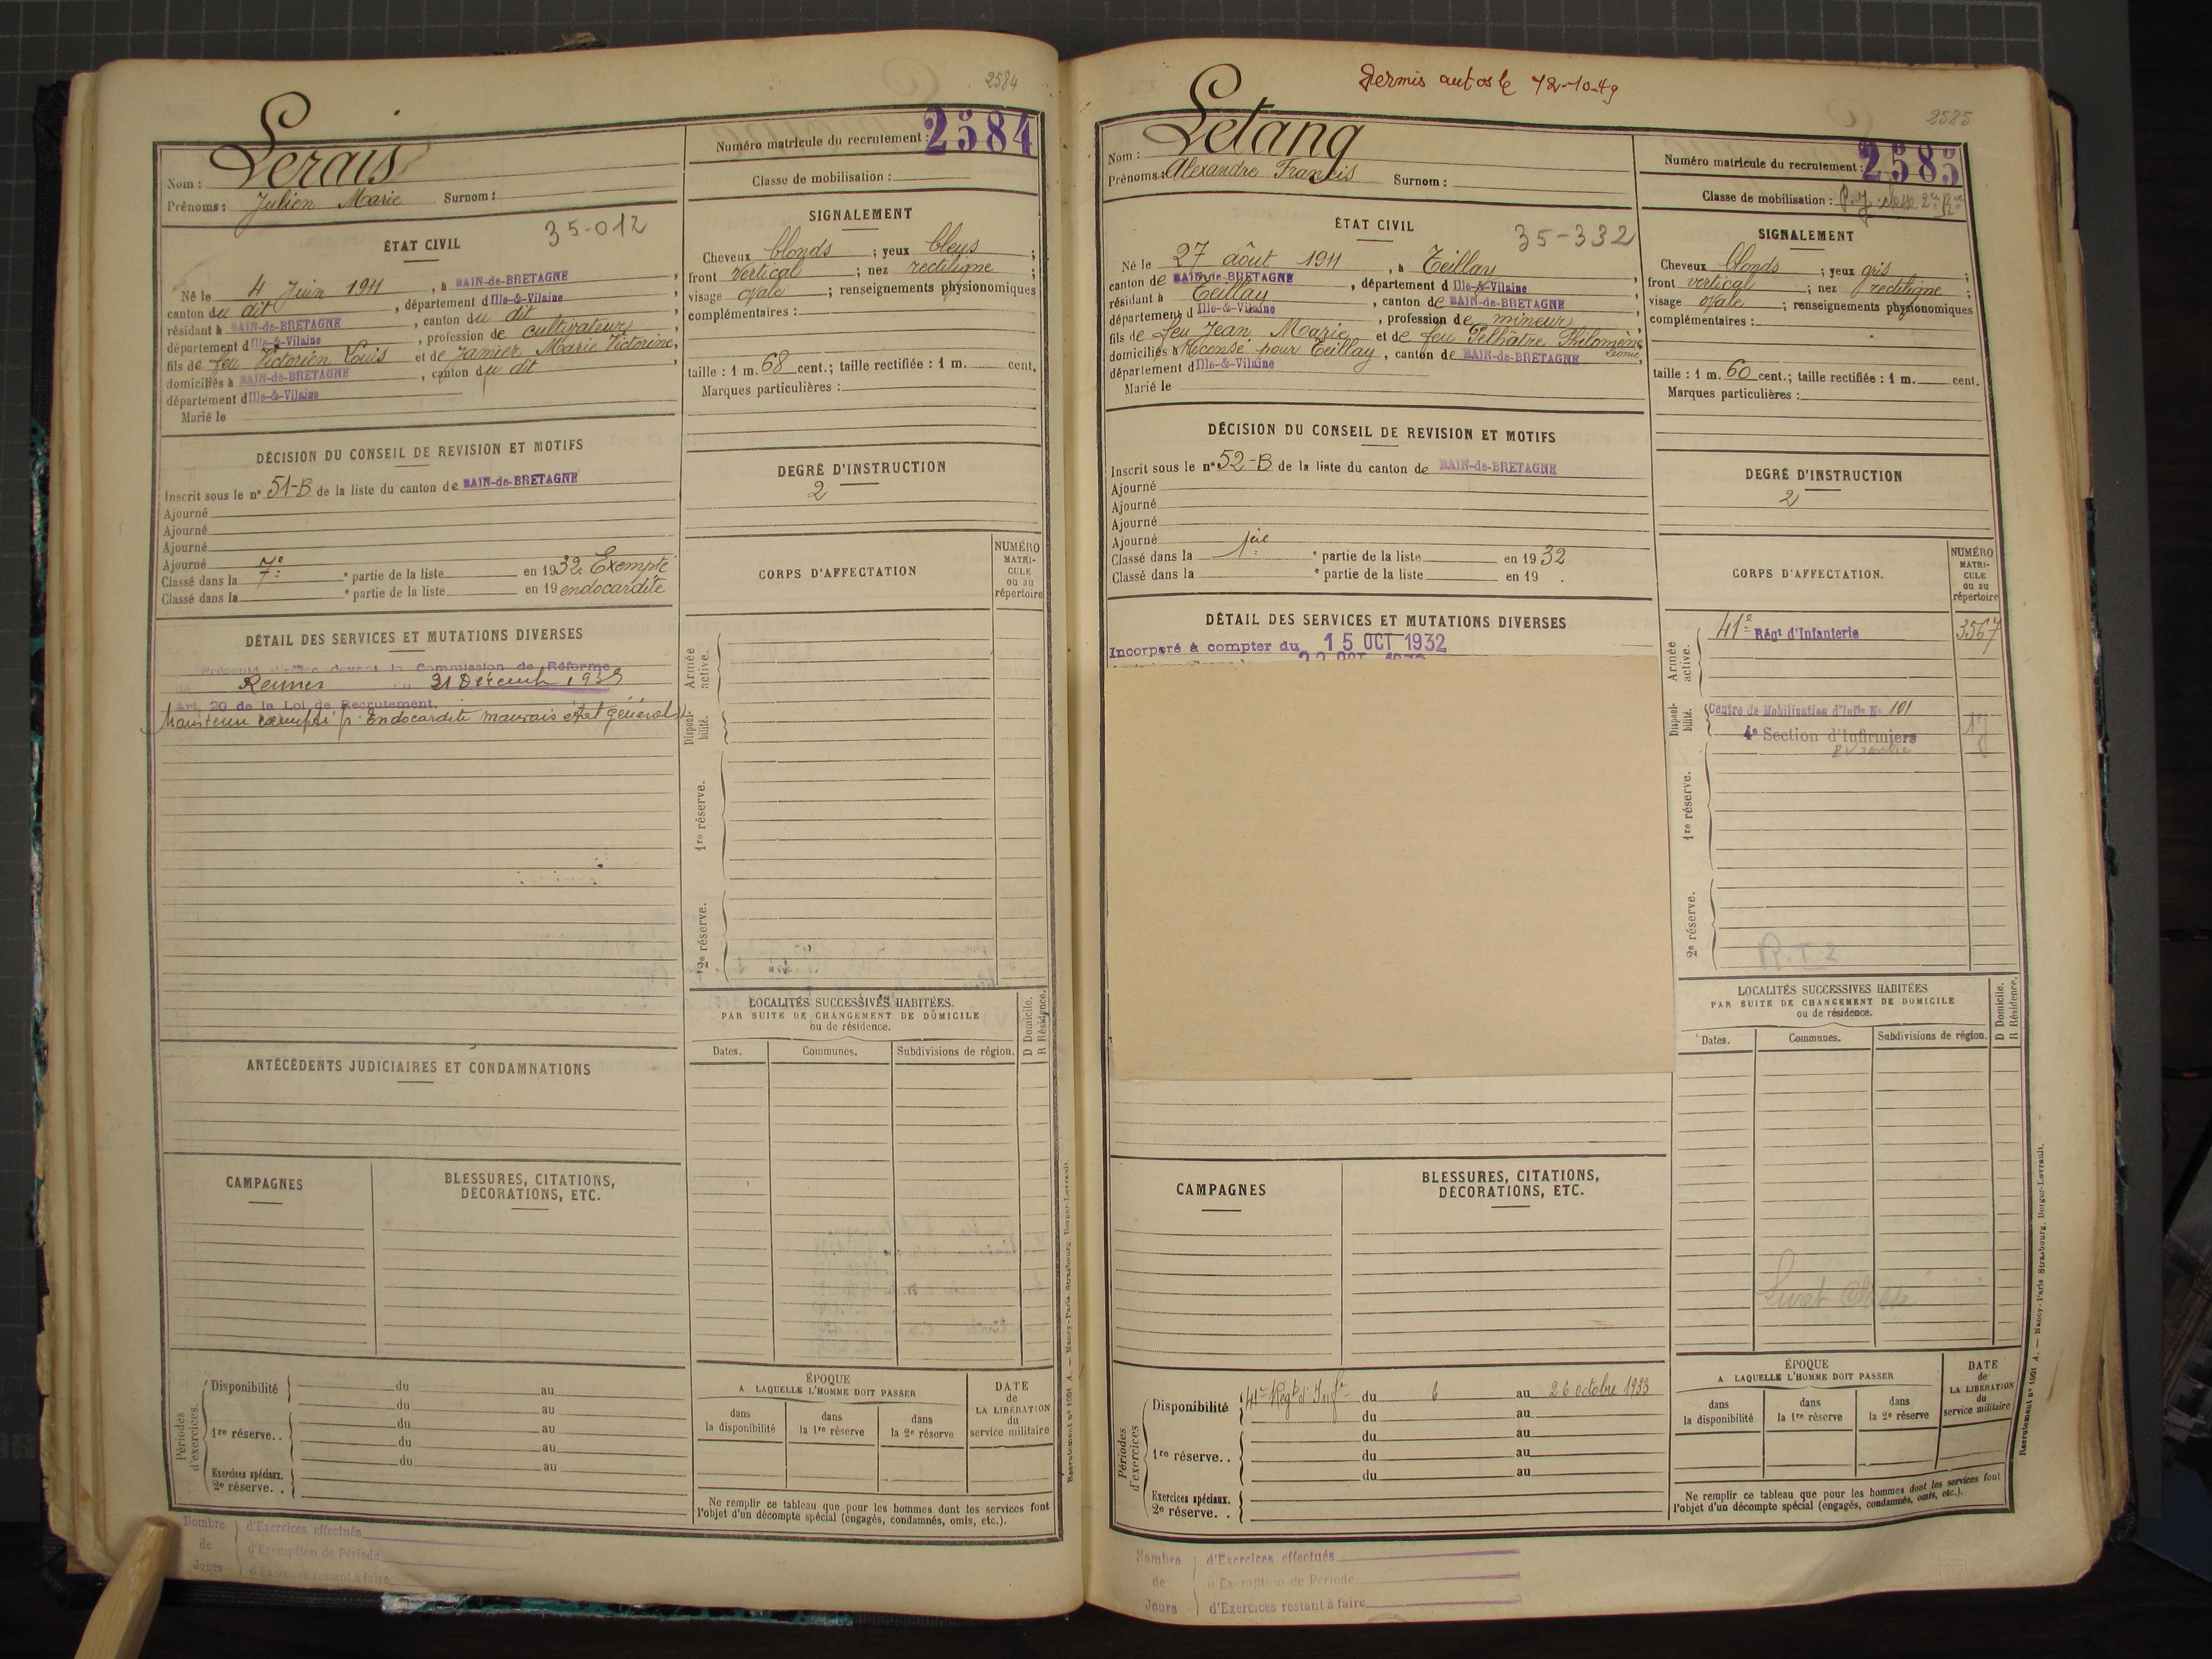 2584
Numéro matricule du recrutement : 2584
Classe de mobilisation :
Nom : Lerais
Prénoms : Julien Marie Surnom :
ÉTAT CIVIL
35-012
Né le 4 Juin 1911, à BAIN-de-BRETAGNE,
canton du dit, département d Ille-&-Vilaine
résidant à BAIN-de-BRETAGNE, canton du dit
département d Ille-&-Vilaine, profession de cultivateur,
fils de feu Victorien Louis et de Jamier Marie Victorine,
domiciliés à BAIN-de-BRETAGNE, canton du dit
département d Ille-&-Vilaine
Marié le
SIGNALEMENT
Cheveux blonds ; yeux bleus ;
front vertical ; nez rectiligne ;
visage ovale ; renseignements physionomiques
complémentaires :
taille : 1 m. 68 cent.; taille rectifiée : 1 m. cent.
Marques particulières :
DÉCISION DU CONSEIL DE REVISION ET MOTIFS
Inscrit sous le n° 51-B de la liste du canton de BAIN-de-BRETAGNE
Ajourné
Ajourné
Ajourné
Ajourné
Classé dans la 7e ° partie de la liste en 1932. Exempté
Classé dans la ° partie de la liste en 19 endocardite
DEGRÉ D'INSTRUCTION
2
DÉTAIL DES SERVICES ET MUTATIONS DIVERSES
Présenté d'office devant la Commission de Réforme
de Rennes du 21 Décemb 1939
Art. 20 de la Loi de Recrutement.
Maintenu exempté p. Endocardite mauvais état général
CORPS D'AFFECTATION
NUMÉRO
MATRI-
CULE
ou au
répertoire
Armée active.
Disponi-bilité.
1re réserve.
2e réserve.
LOCALITÉS SUCCESSIVES HABITÉES
PAR SUITE DE CHANGEMENT DE DOMICILE
ou de résidence.
D Domicile.
R Résidence.
Dates.
Communes.
Subdivisions de région.
ANTÉCÉDENTS JUDICIAIRES ET CONDAMNATIONS
CAMPAGNES
BLESSURES, CITATIONS,
DÉCORATIONS, ETC.
Périodes d'exercices.
Disponibilité du au
du au
1re réserve. . du au
du au
du au
Exercices spéciaux.
2e réserve. .
ÉPOQUE
A LAQUELLE L'HOMME DOIT PASSER
dans la disponibilité
dans la 1re réserve
dans la 2e réserve
DATE
de
LA LIBÉRATION
du
service militaire
Ne remplir ce tableau que pour les hommes dont les services font
l'objet d'un décompte spécial (engagés, condamnés, omis, etc.).
Recrutement N° 1091 A. — Nancy-Paris-Strasbourg, Berger-Levrault.
Nombre
de
Jours
d'Exercices effectués
d'Exemption de Période
d'Exercices restant à faire
12-10-49
2585
Numéro matricule du recrutement : 2585
Classe de mobilisation :
Nom : Letang
Prénoms : Alexandre Francis Surnom :
ÉTAT CIVIL
35-332
Né le 27 août 1911, à Teillay,
canton de BAIN-de-BRETAGNE, département d Ille-&-Vilaine
résidant à Teillay, canton de BAIN-de-BRETAGNE
département d Ille-&-Vilaine, profession de mineur,
fils de feu Jean Marie et de feu Pelhâtre Philomène Léonie,
domiciliés à Recensé pour Teillay, canton de BAIN-de-BRETAGNE
département d Ille-&-Vilaine
Marié le
SIGNALEMENT
Cheveux blonds ; yeux gris ;
front vertical ; nez rectiligne ;
visage ovale ; renseignements physionomiques
complémentaires :
taille : 1 m. 60 cent.; taille rectifiée : 1 m. cent.
Marques particulières :
DÉCISION DU CONSEIL DE REVISION ET MOTIFS
Inscrit sous le n° 52-B de la liste du canton de BAIN-de-BRETAGNE
Ajourné
Ajourné
Ajourné
Ajourné
Classé dans la 1ère ° partie de la liste en 1932
Classé dans la ° partie de la liste en 19 .
DEGRÉ D'INSTRUCTION
2
DÉTAIL DES SERVICES ET MUTATIONS DIVERSES
Incorporé à compter du 15 OCT 1932
CORPS D'AFFECTATION.
NUMÉRO
MATRI-
CULE
ou au
répertoire
Armée active.
41e Régt d'Infanterie 3567
Disponi-bilité.
Centre de Mobilisation d'Infie N° 101
4e Section d'Infirmiers
1re réserve.
2e réserve.
R.T2
LOCALITÉS SUCCESSIVES HABITÉES
PAR SUITE DE CHANGEMENT DE DOMICILE
ou de résidence.
D Domicile.
R Résidence.
Dates.
Communes.
Subdivisions de région.
Livret
CAMPAGNES
BLESSURES, CITATIONS,
DÉCORATIONS, ETC.
Périodes d'exercices
Disponibilité 41e Régt d'Infie du 6 au 26 octobre 1933
du au
1re réserve. . du au
du au
du au
Exercices spéciaux.
2e réserve. .
ÉPOQUE
A LAQUELLE L'HOMME DOIT PASSER
dans la disponibilité
dans la 1re réserve
dans la 2e réserve
DATE
de
LA LIBÉRATION
du
service militaire
Ne remplir ce tableau que pour les hommes dont les services font
l'objet d'un décompte spécial (engagés, condamnés, omis, etc.).
Recrutement N° 1091 A. — Nancy-Paris-Strasbourg, Berger-Levrault.
Nombre
de
Jours
d'Exercices effectués
d'Exemption de Période
d'Exercices restant à faire